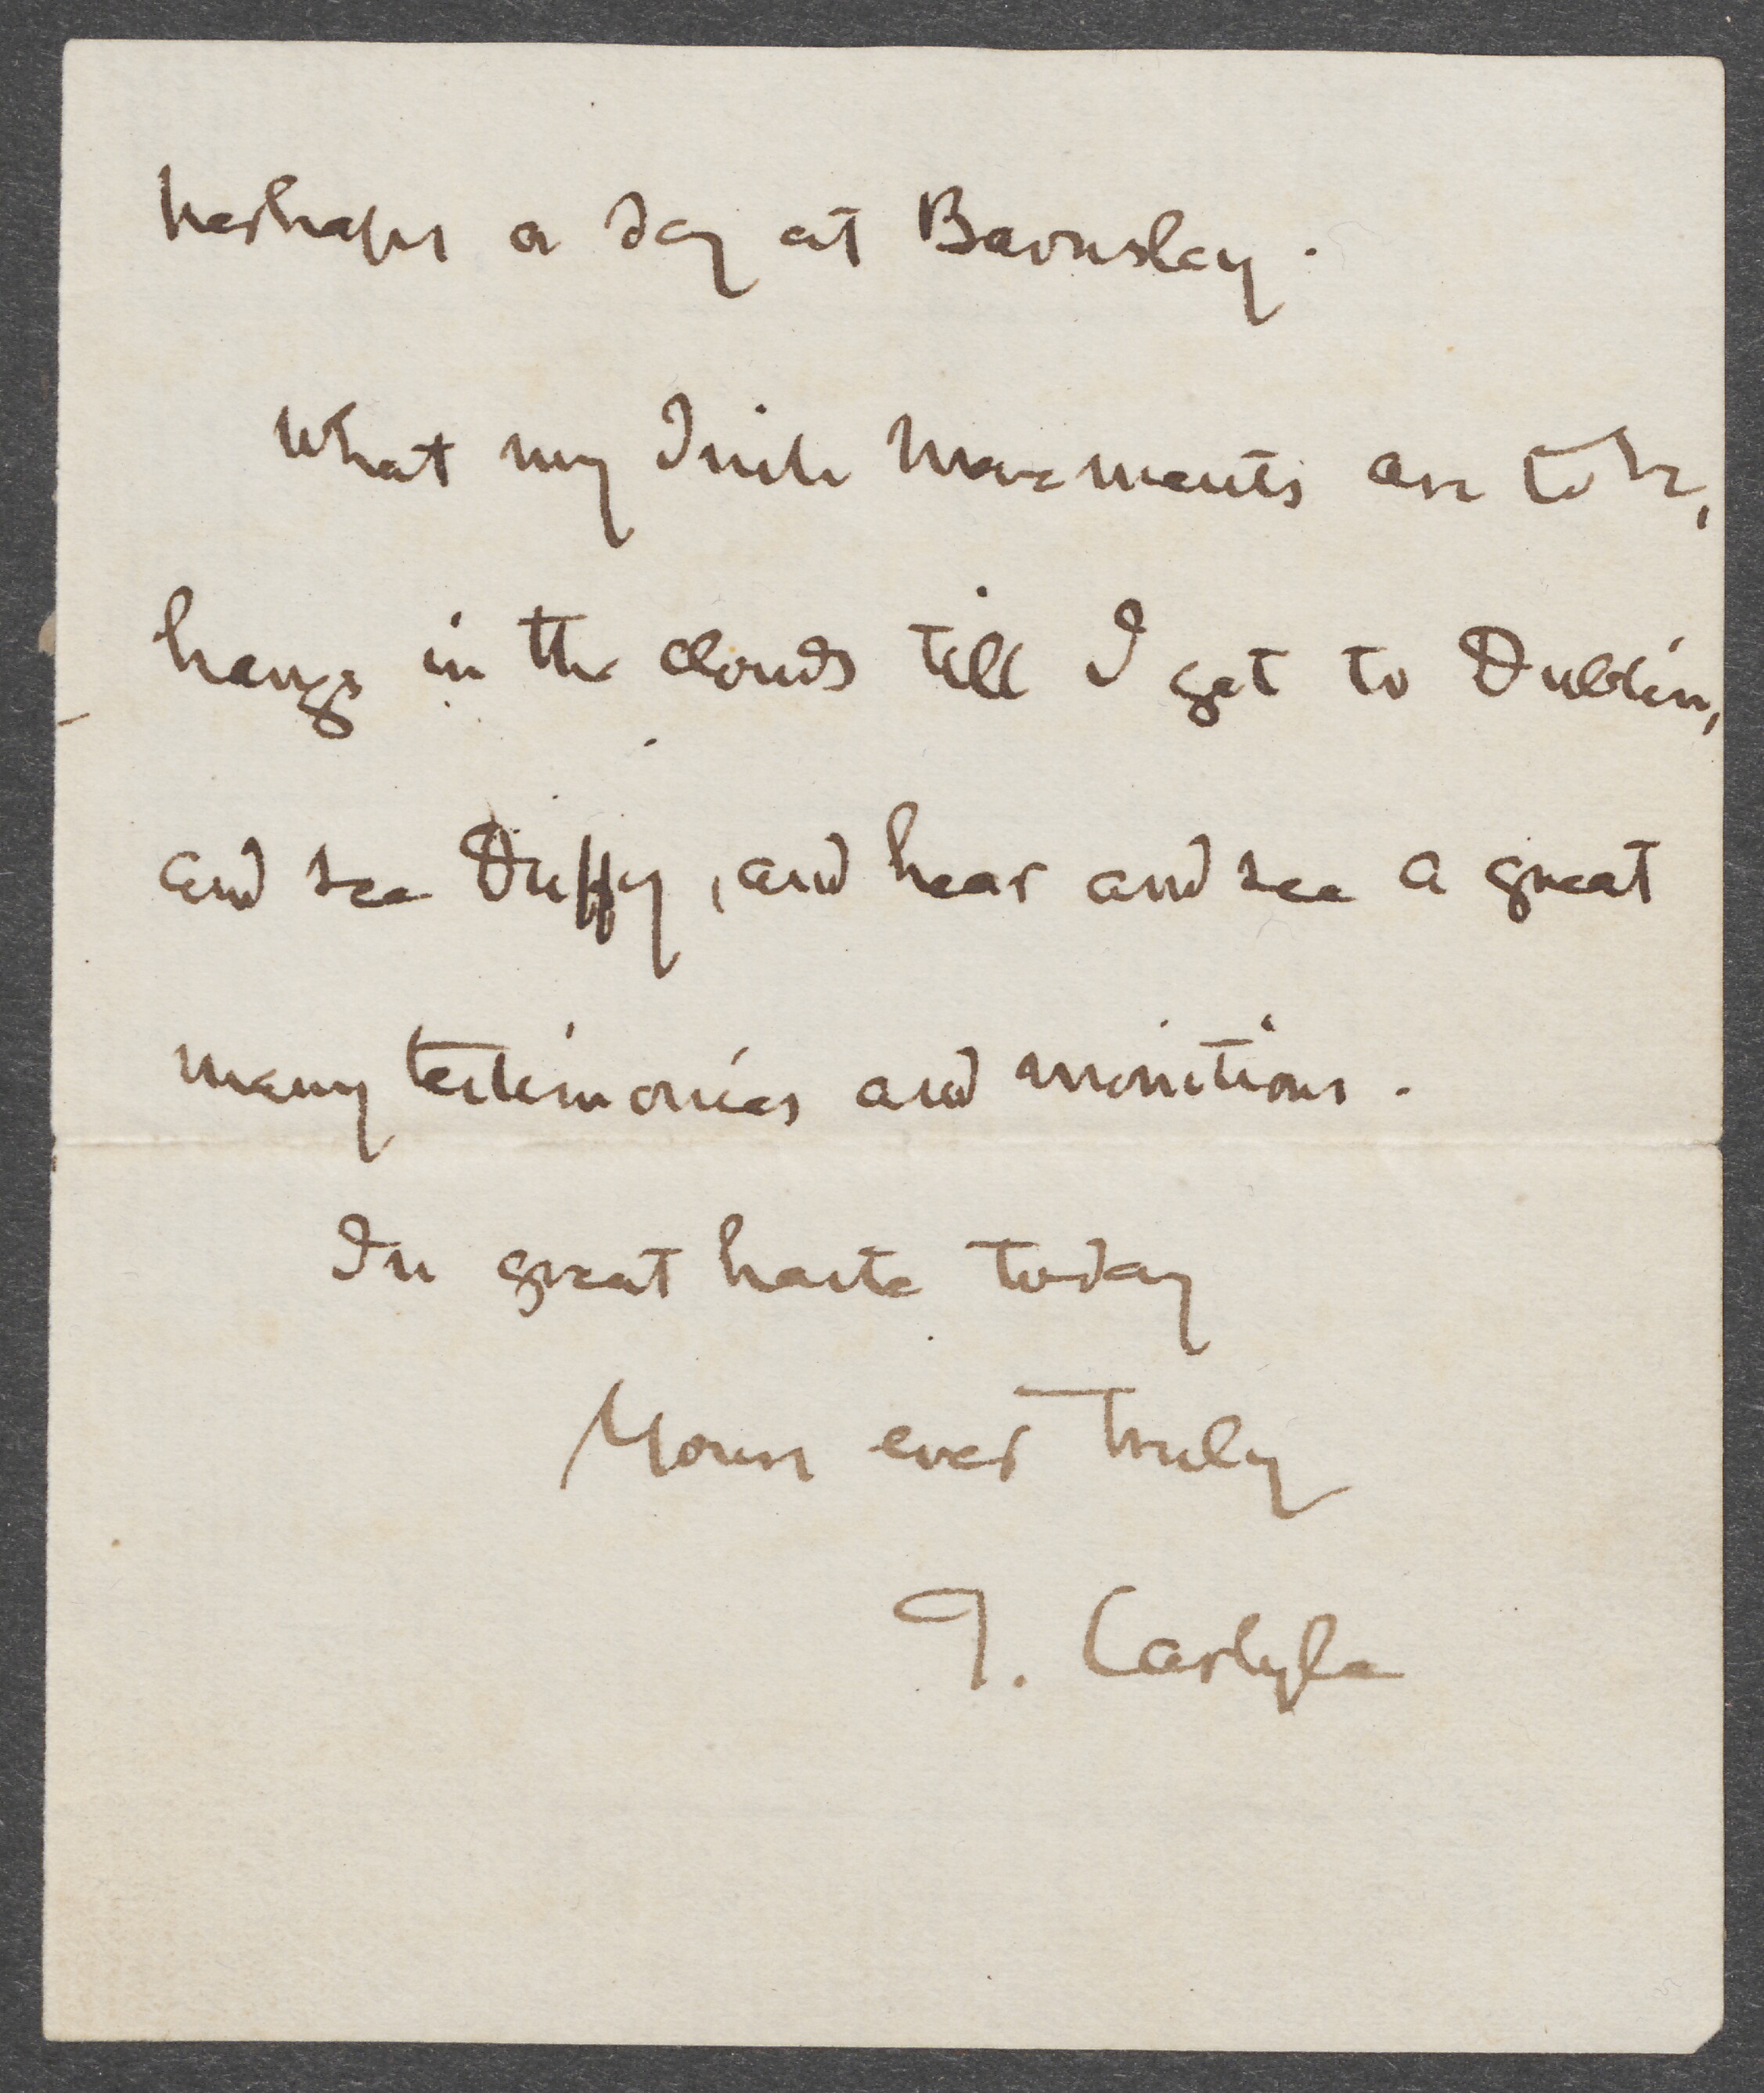 perhaps a day at Barnsley.
What my Irish movements are to be,
hangs in the clouds till I get to Dublin,
and see Duffy, and hear and see a great
many testimonies and monitions.
In great haste today
Yours ever truly
T. Carlyle